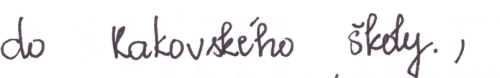 do Kakovského školy.,